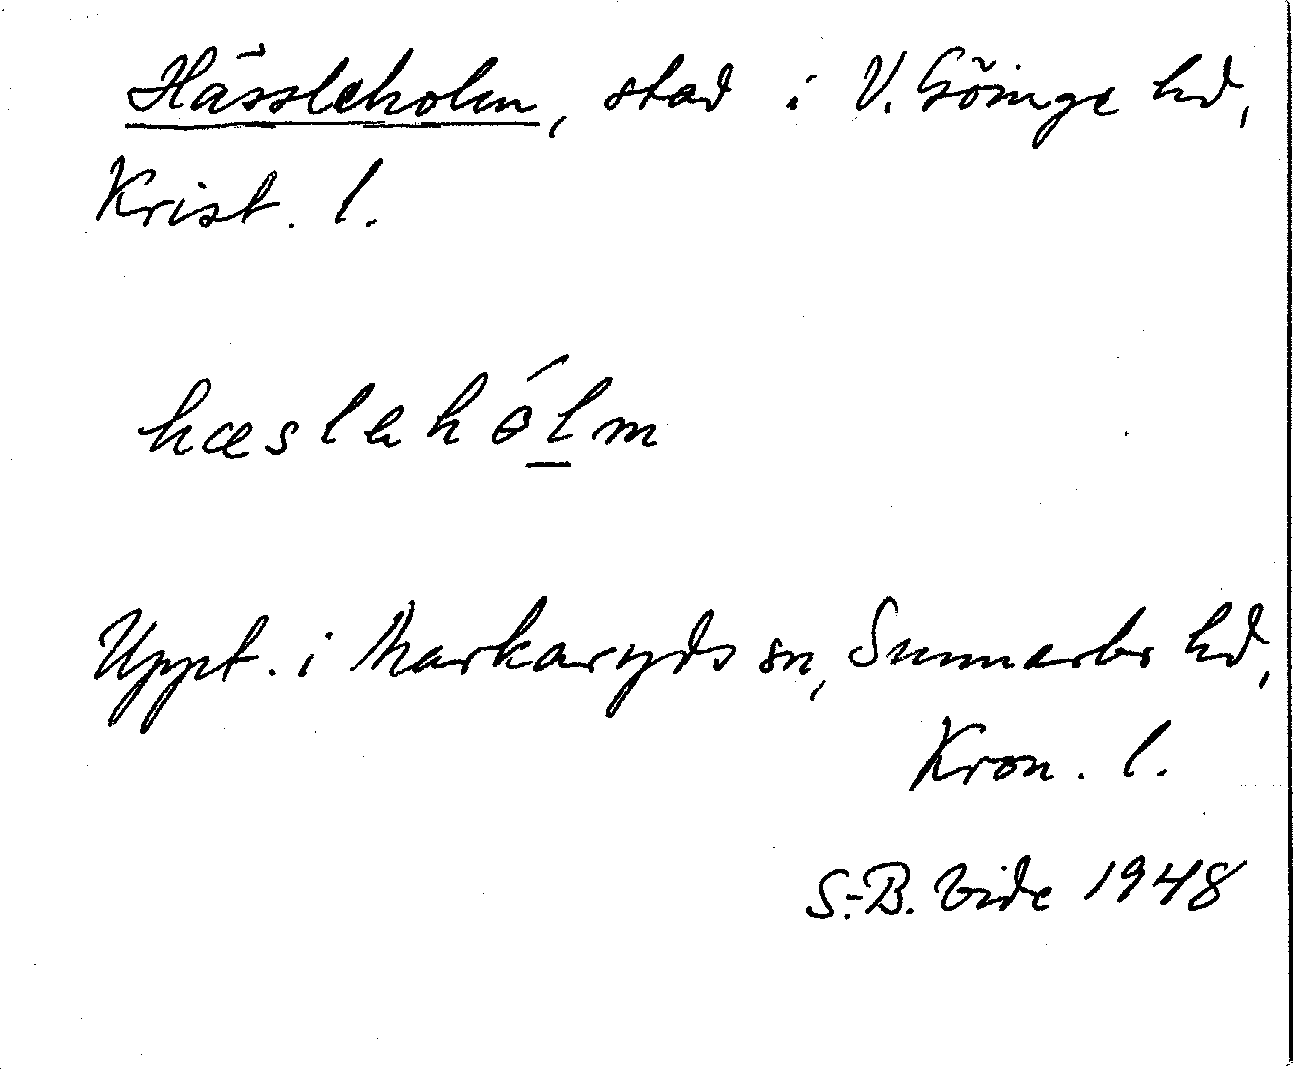 Hässleholm, stad i V. Göinge hd,
Krist. l.
hæslahól̲m
Uppt. i Markaryds sn, Sunnerbo hd,
Kron. l.
S.-B. Vide 1948